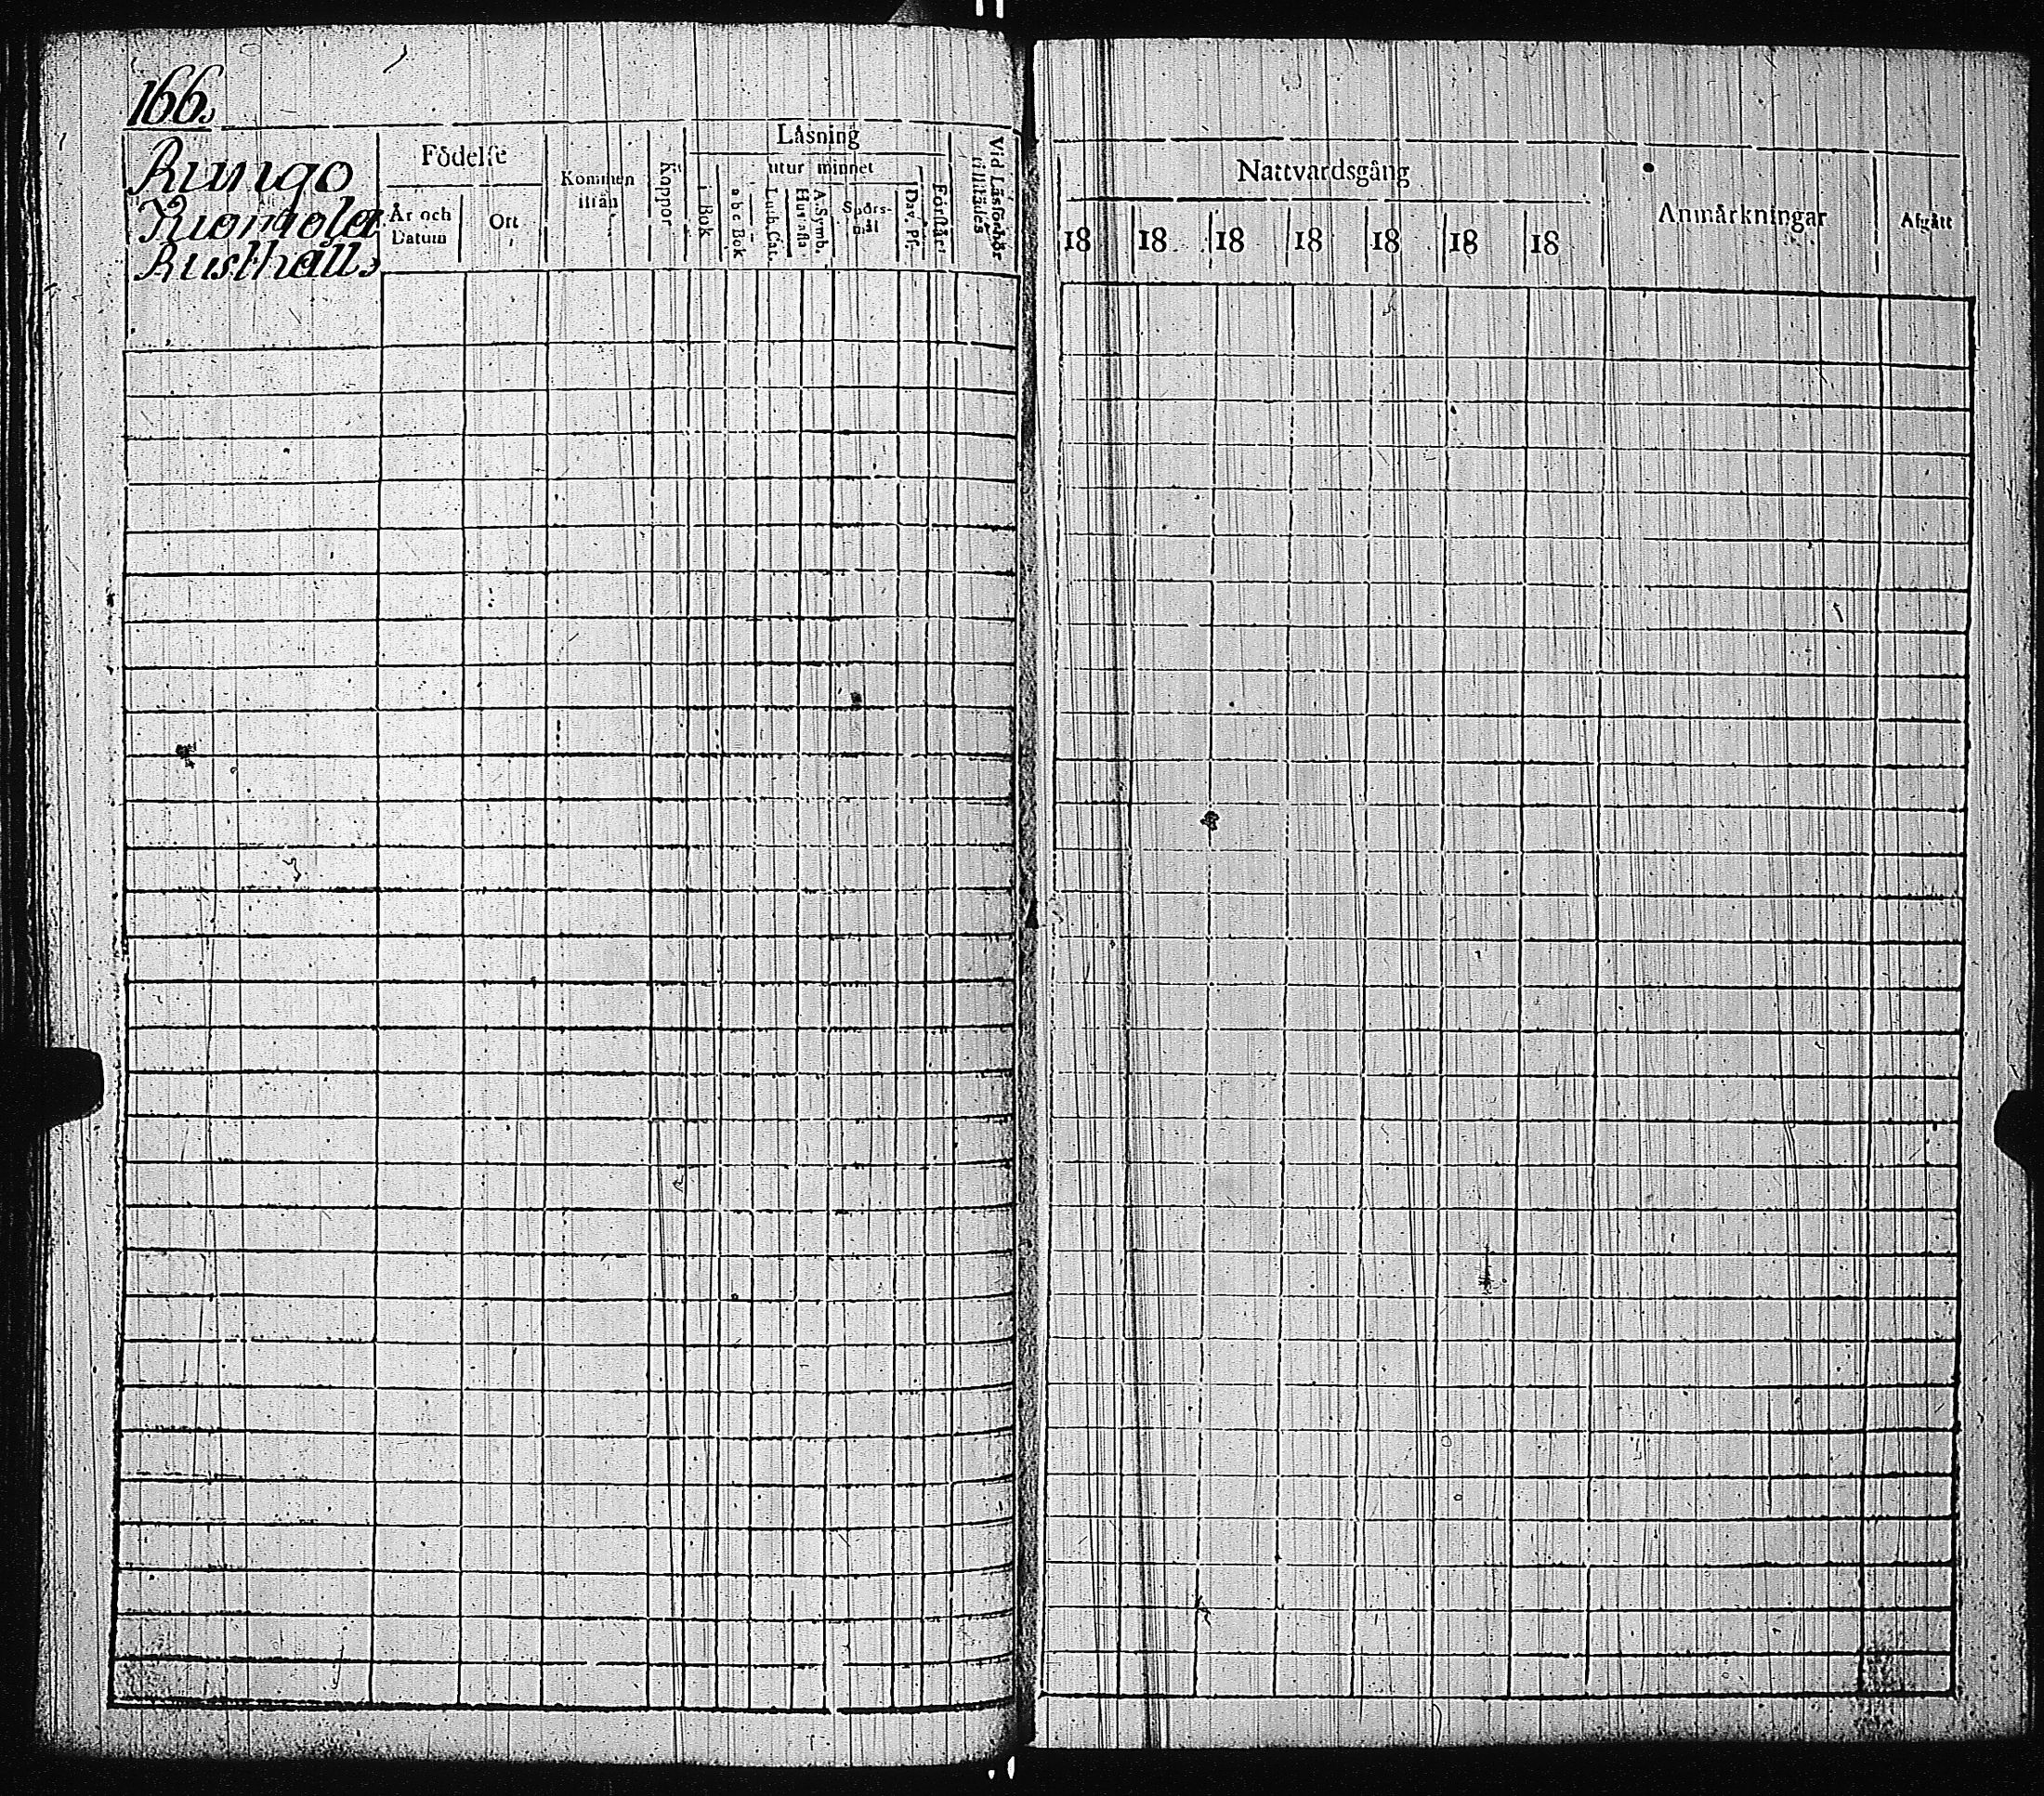 166.
Rungo
Kuomola
Rusthall.
Födelse
År och Datum
Ort
Kommen ifrån
Koppor
Läsning
i Bok
utur minnet
abc Bok
Luth. Cat.
Hustafla
A. Symb.
Spörsmål
Dav. Ps.
Förstår
Vid Läsförhör tillstädes
Nattvardsgång
18 18 18 18 18 18 18
Anmärkningar
Afgått